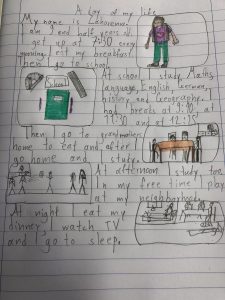 A day of my life
My name is
I am 9 and half years old. I
get up at 7:30 every
morning, eat my breakfast.
Then, I go to school.
At school I study Maths,
language, English, German,
history and Geography. I
had breaks at 9:40, at
11:30 and at 12:15.
Then, I go to grandmothers
home to eat and after I
go home and I study.
At afternoon I study too.
In my free time I play
at my neighborhood.
At night I eat my
dinner, I watch TV
and I go to sleep.